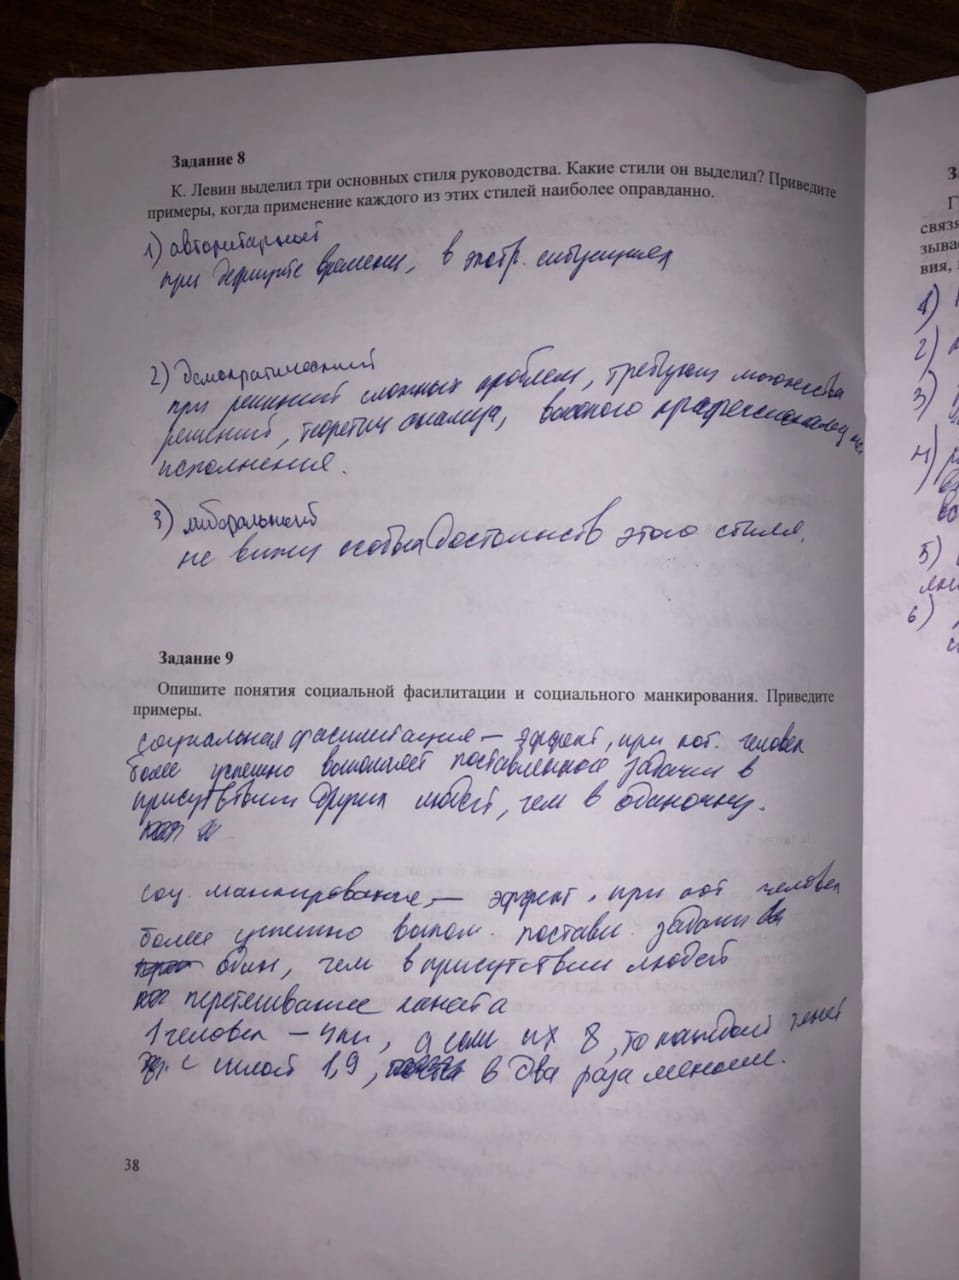 Задание 8
К. Левин выделил три основных стиля руководства. Какие стили он выделил? Приведите
примеры, когда применение каждого из этих стилей наиболее оправданно.
1) авторитарный
при дефиците времени, в экстр. ситуациях
2) демократический
при решений сложных проблем, требующ множества
решений, теоретич анализа, высокого профессионально
исполнения.
3) либеральный
не вижу особых достоинств этого стиля.
Задание 9
Опишите понятия социальной фасилитации и социального манкирования. Приведите
примеры.
социальная фасилитация – эффект, при кот. человек
более успешно выполняет поставленные задачи в
присутствии других людей, чем в одиночку.
соц. манкирование – эффект, при кот человек
более успешно выпол. поставл. задачи
один, чем в присутствии людей
перетягивание каната
1 человек – 4 , а если их 8, то каждый тянет
с силой 1,9, в два раза меньше.
38
З
Г
связя
зыва
вия,
1)
2)
3)
4)
5)
6)